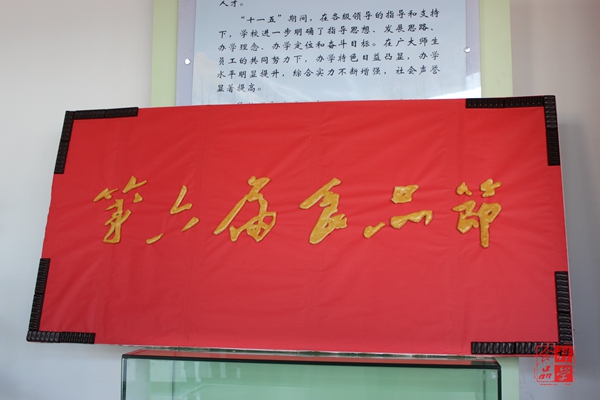 人才。
“十一五”期间，在各级领导的指导和支持
下，学校进一步明确了指导思想、发展思路、
办学理念、办学定位和奋斗目标。在广大师生
员工的共同努力下，办学特色日益凸显，办学
水平明显提升，综合实力不断增强，社会声誉
显著提高。
第六届食品節